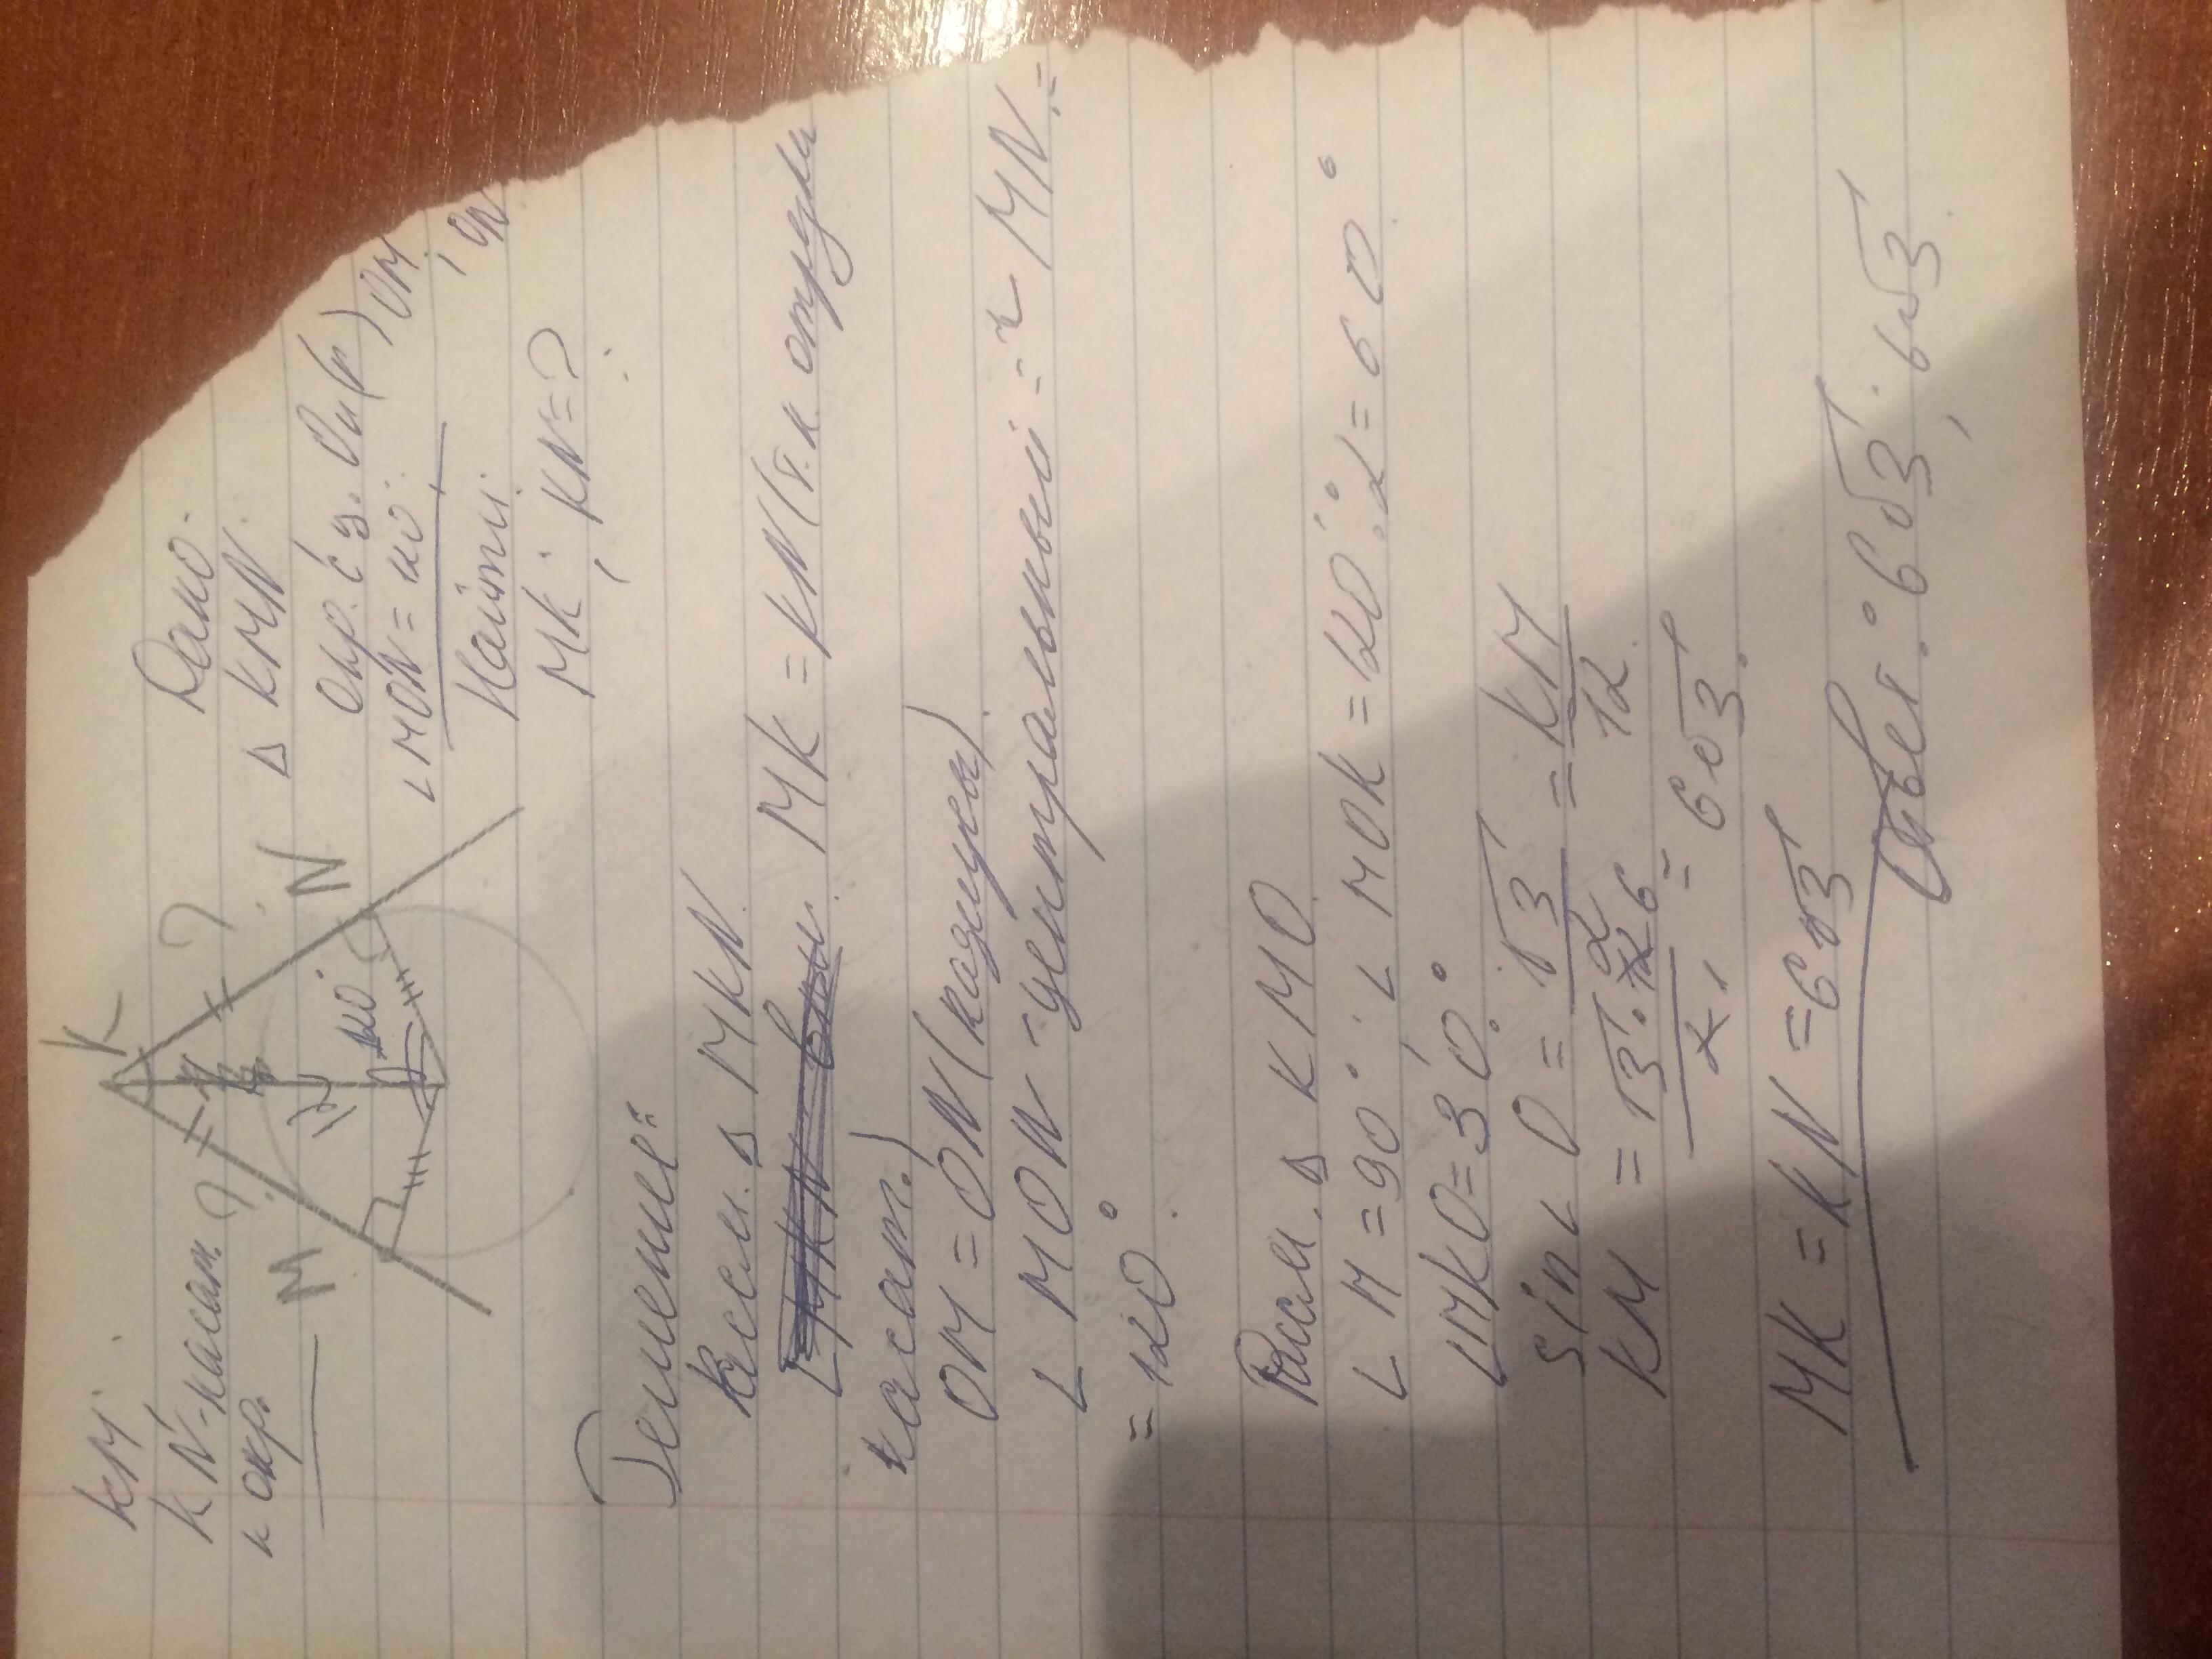 Дано:
∆ KMN.
окр. с ц. O и (r) OM, ON
∠MON = 120°
Найти:
MK; KN = ?
KM,
KN - касат.
к окр.
K
M
N
?
?
12
120°
Решение:
Рассм. ∆ MKN.
MK = KN (т.к. отрезки
касат.)
OM = ON (радиусы)
∠ MON - центральный = ◡ MN =
= 120°.
Рассм. ∆ KMO.
∠ M = 90°, ∠ MOK = 120° : 2 = 60°
∠MKO = 30°.
sin ∠ O = √3/2 = KM/12
KM = √3 · 12 6/2 1 = 6√3.
MK = KN = 6√3
Ответ: 6√3; 6√3